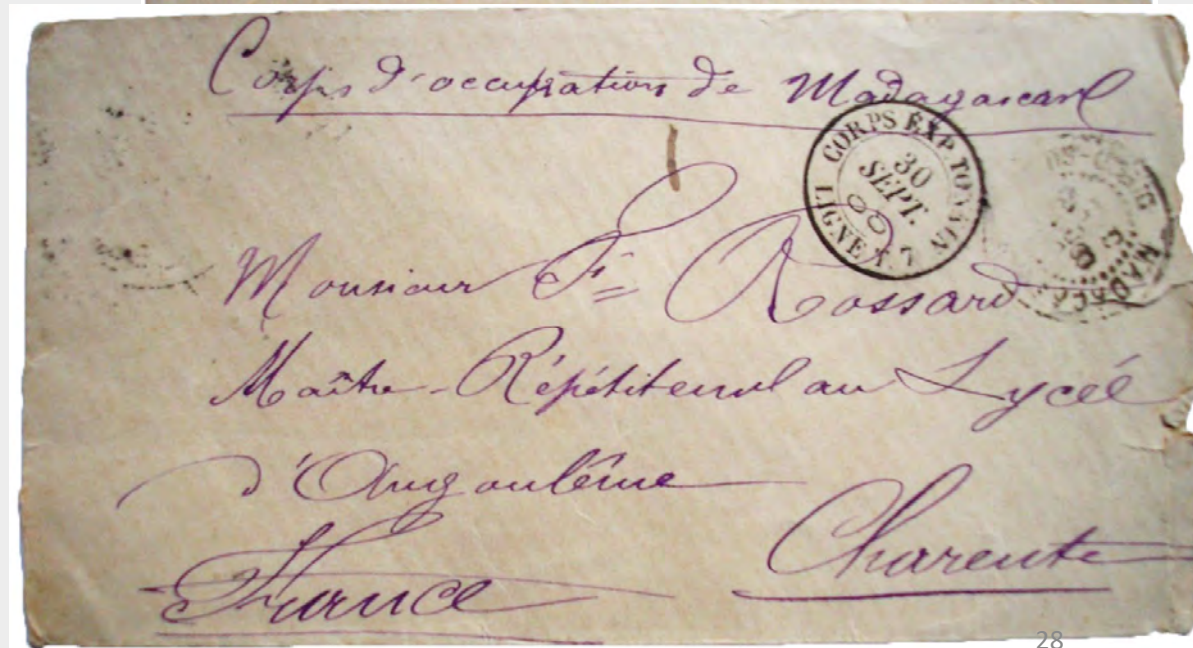 Corps d'occupation de Madagascar
CORPS EXP. TONKIN
30
SEPT.
88
LIGNE T. 7
MADAGA
Monsieur F. Rossard
Maître-Répétiteur au Lycée
d'Angoulême
France Charente
28